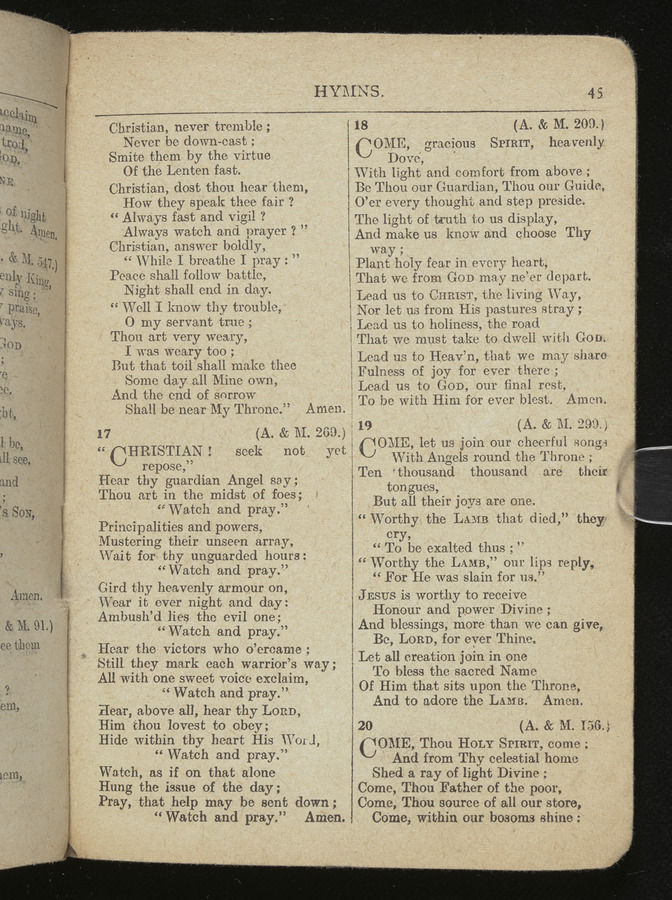 HYMNS. 45
Christian, never tremble ;
Never be down-cast ;
Smite them by the virtue
Of the Lenten fast.
Christian, dost thou hear them,
How they speak thee fair ?
“ Always fast and vigil ?
Always watch and prayer ? ”
Christian, answer boldly,
“ While I breathe I pray : ”
Peace shall follow battle,
Night shall end in day.
“ Well I know thy trouble,
O my servant true ;
Thou art very weary,
I was weary too ;
But that toil shall make thee
Some day all Mine own,
And the end of sorrow
Shall be near My Throne.” Amen.
17 (A. & M. 269.)
“ CHRISTIAN ! seek not yet
repose,”
Hear thy guardian Angel say ;
Thou art in the midst of foes ;
“ Watch and pray.”
Principalities and powers,
Mustering their unseen array,
Wait for thy unguarded hours :
“ Watch and pray.”
Gird thy heavenly armour on,
Wear it ever night and day :
Ambush’d lies the evil one ;
“ Watch and pray.”
Hear the victors who o’ercame ;
Still they mark each warrior’s way ;
All with one sweet voice exclaim,
“ Watch and pray.”
Hear, above all, hear thy LORD,
Him thou lovest to obey ;
Hide within thy heart His Word,
“ Watch and pray.”
Watch, as if on that alone
Hung the issue of the day ;
Pray, that help may be sent down ;
“ Watch and pray.” Amen.
18 (A. & M. 209.)
COME, gracious SPIRIT, heavenly
Dove,
With light and comfort from above ;
Be Thou our Guardian, Thou our Guide,
O’er every thought and step preside.
The light of truth to us display,
And make us know and choose Thy
way ;
Plant holy fear in every heart,
That we from GOD may ne’er depart.
Lead us to CHRIST, the living Way,
Nor let us from His pastures stray ;
Lead us to holiness, the road
That we must take to dwell with GOD.
Lead us to Heav’n, that we may share
Fulness of joy for ever there ;
Lead us to GOD, our final rest,
To be with Him for ever blest. Amen.
19 (A. & M. 299.)
COME, let us join our cheerful songs
With Angels round the Throne ;
Ten thousand thousand are their
tongues,
But all their joys are one.
“ Worthy the LAMB that died,” they
cry,
“ To be exalted thus ; ”
“ Worthy the LAMB,” our lips reply,
“ For He was slain for us.”
JESUS is worthy to receive
Honour and power Divine ;
And blessings, more than we can give,
Be, LORD, for ever Thine.
Let all creation join in one
To bless the sacred Name
Of Him that sits upon the Throne,
And to adore the LAMB. Amen.
20 (A. & M. 156.)
COME, Thou HOLY SPIRIT, come ;
And from Thy celestial home
Shed a ray of light Divine ;
Come, Thou Father of the poor,
Come, Thou source of all our store,
Come, within our bosoms shine :